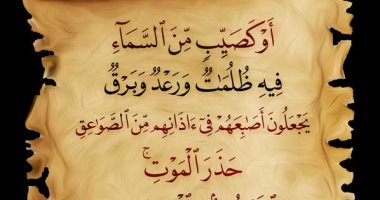 أَوْ كَصَيِّبٍ مِّنَ السَّمَآءِ
فِيهِ ظُلُمَٰتٌ وَرَعْدٌ وَبَرْقٌ
يَجْعَلُونَ أَصَٰبِعَهُمْ فِىٓ ءَاذَانِهِم مِّنَ الصَّوَٰعِقِ
حَذَرَ الْمَوْتِ ۚ